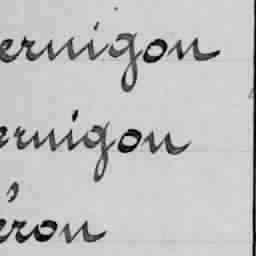 ernigon
ernigon
éron